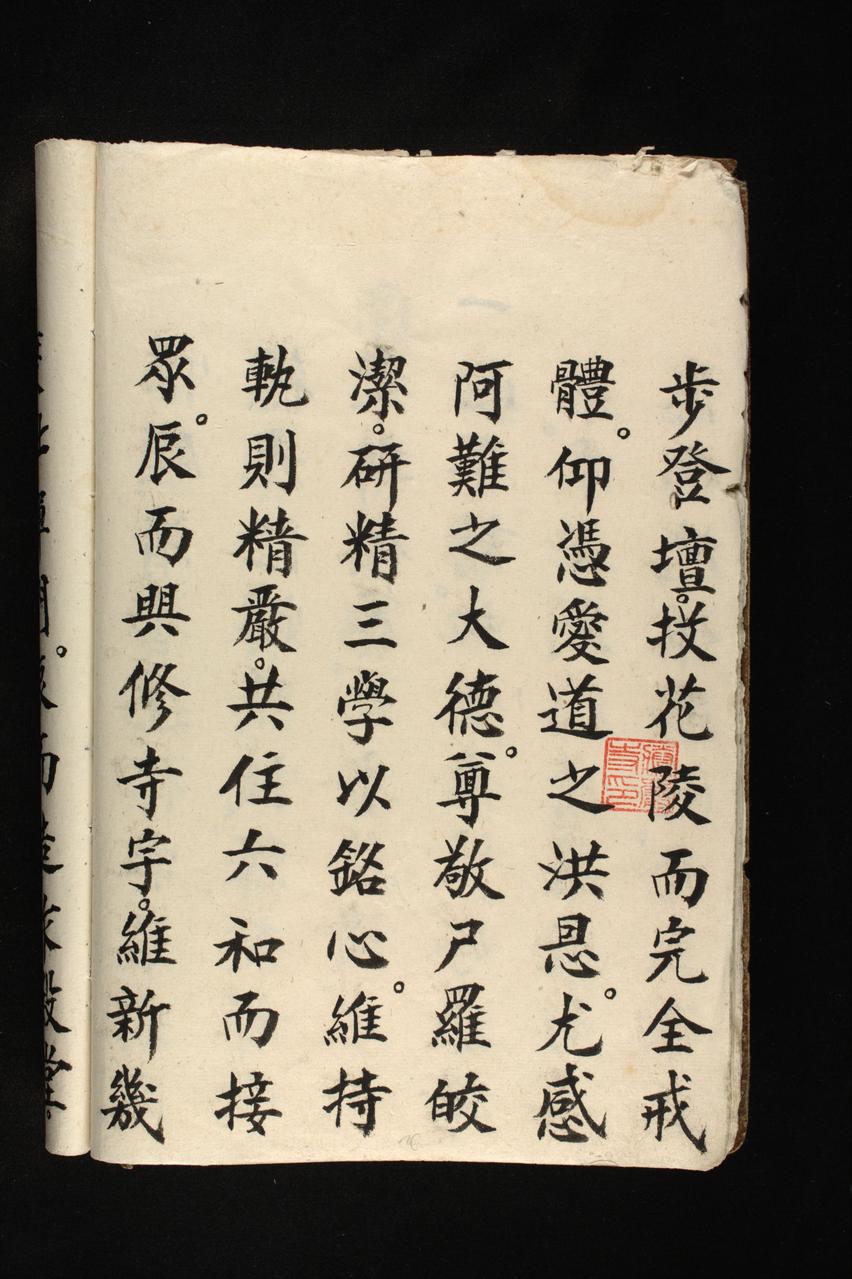 步登壇。投花陵而完全戒
體。仰憑愛道之洪恩。尤感
阿難之大德。尊敬尸羅皎
潔。研精三學以銘心。維持
軌則精嚴。共住六和而接
眾。辰而興修寺宇。維新幾